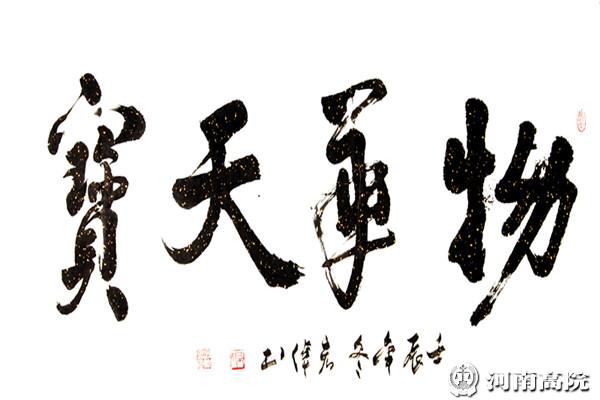 物華天寶
壬辰年冬 偉书
河南高院